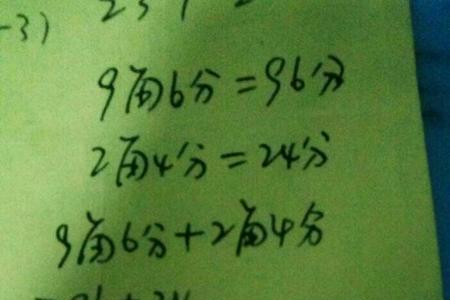 -3)
9角6分=96分
2角4分=24分
9角6分+2角4分